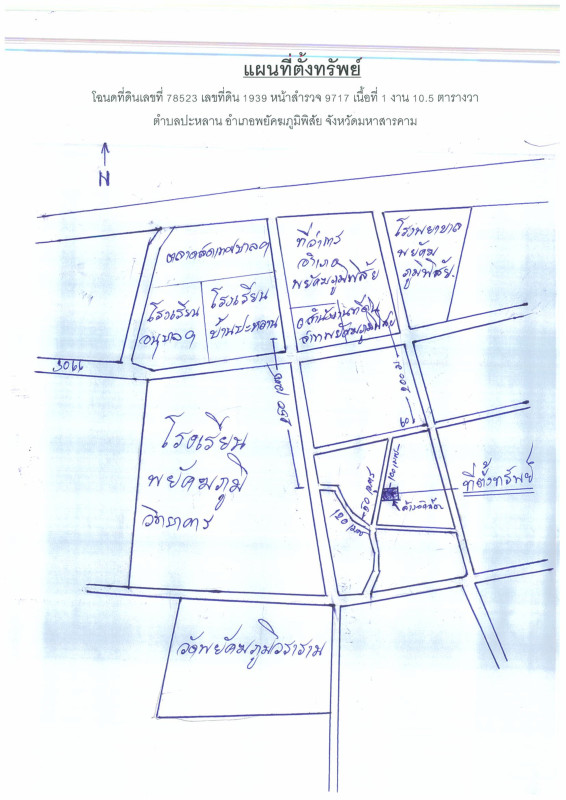 แผนที่ตั้งทรัพย์
โฉนดที่ดินเลขที่ 78523 เลขที่ดิน 1939 หน้าสำรวจ 9717 เนื้อที่ 1 งาน 10.5 ตารางวา
ตำบลปะหลาน อำเภอพยัคฆภูมิพิสัย จังหวัดมหาสารคาม
N
ตลาดสดเทศบาลฯ
ที่ว่าการ
อำเภอ
พยัคฆภูมิพิสัย
โรงพยาบาล
พยัคฆ
ภูมิพิสัย
โรงเรียน
อนุบาลฯ
โรงเรียน
บ้านปะหลาน
สำนักงานที่ดิน
พยัคฆภูมิพิสัย
350 เมตร
200
3066
โรงเรียน
พยัคฆภูมิ
วิทยาคาร
50 เมตร
120 เมตร
ที่ตั้งทรัพย์
วัดพยัคฆภูมิวราราม